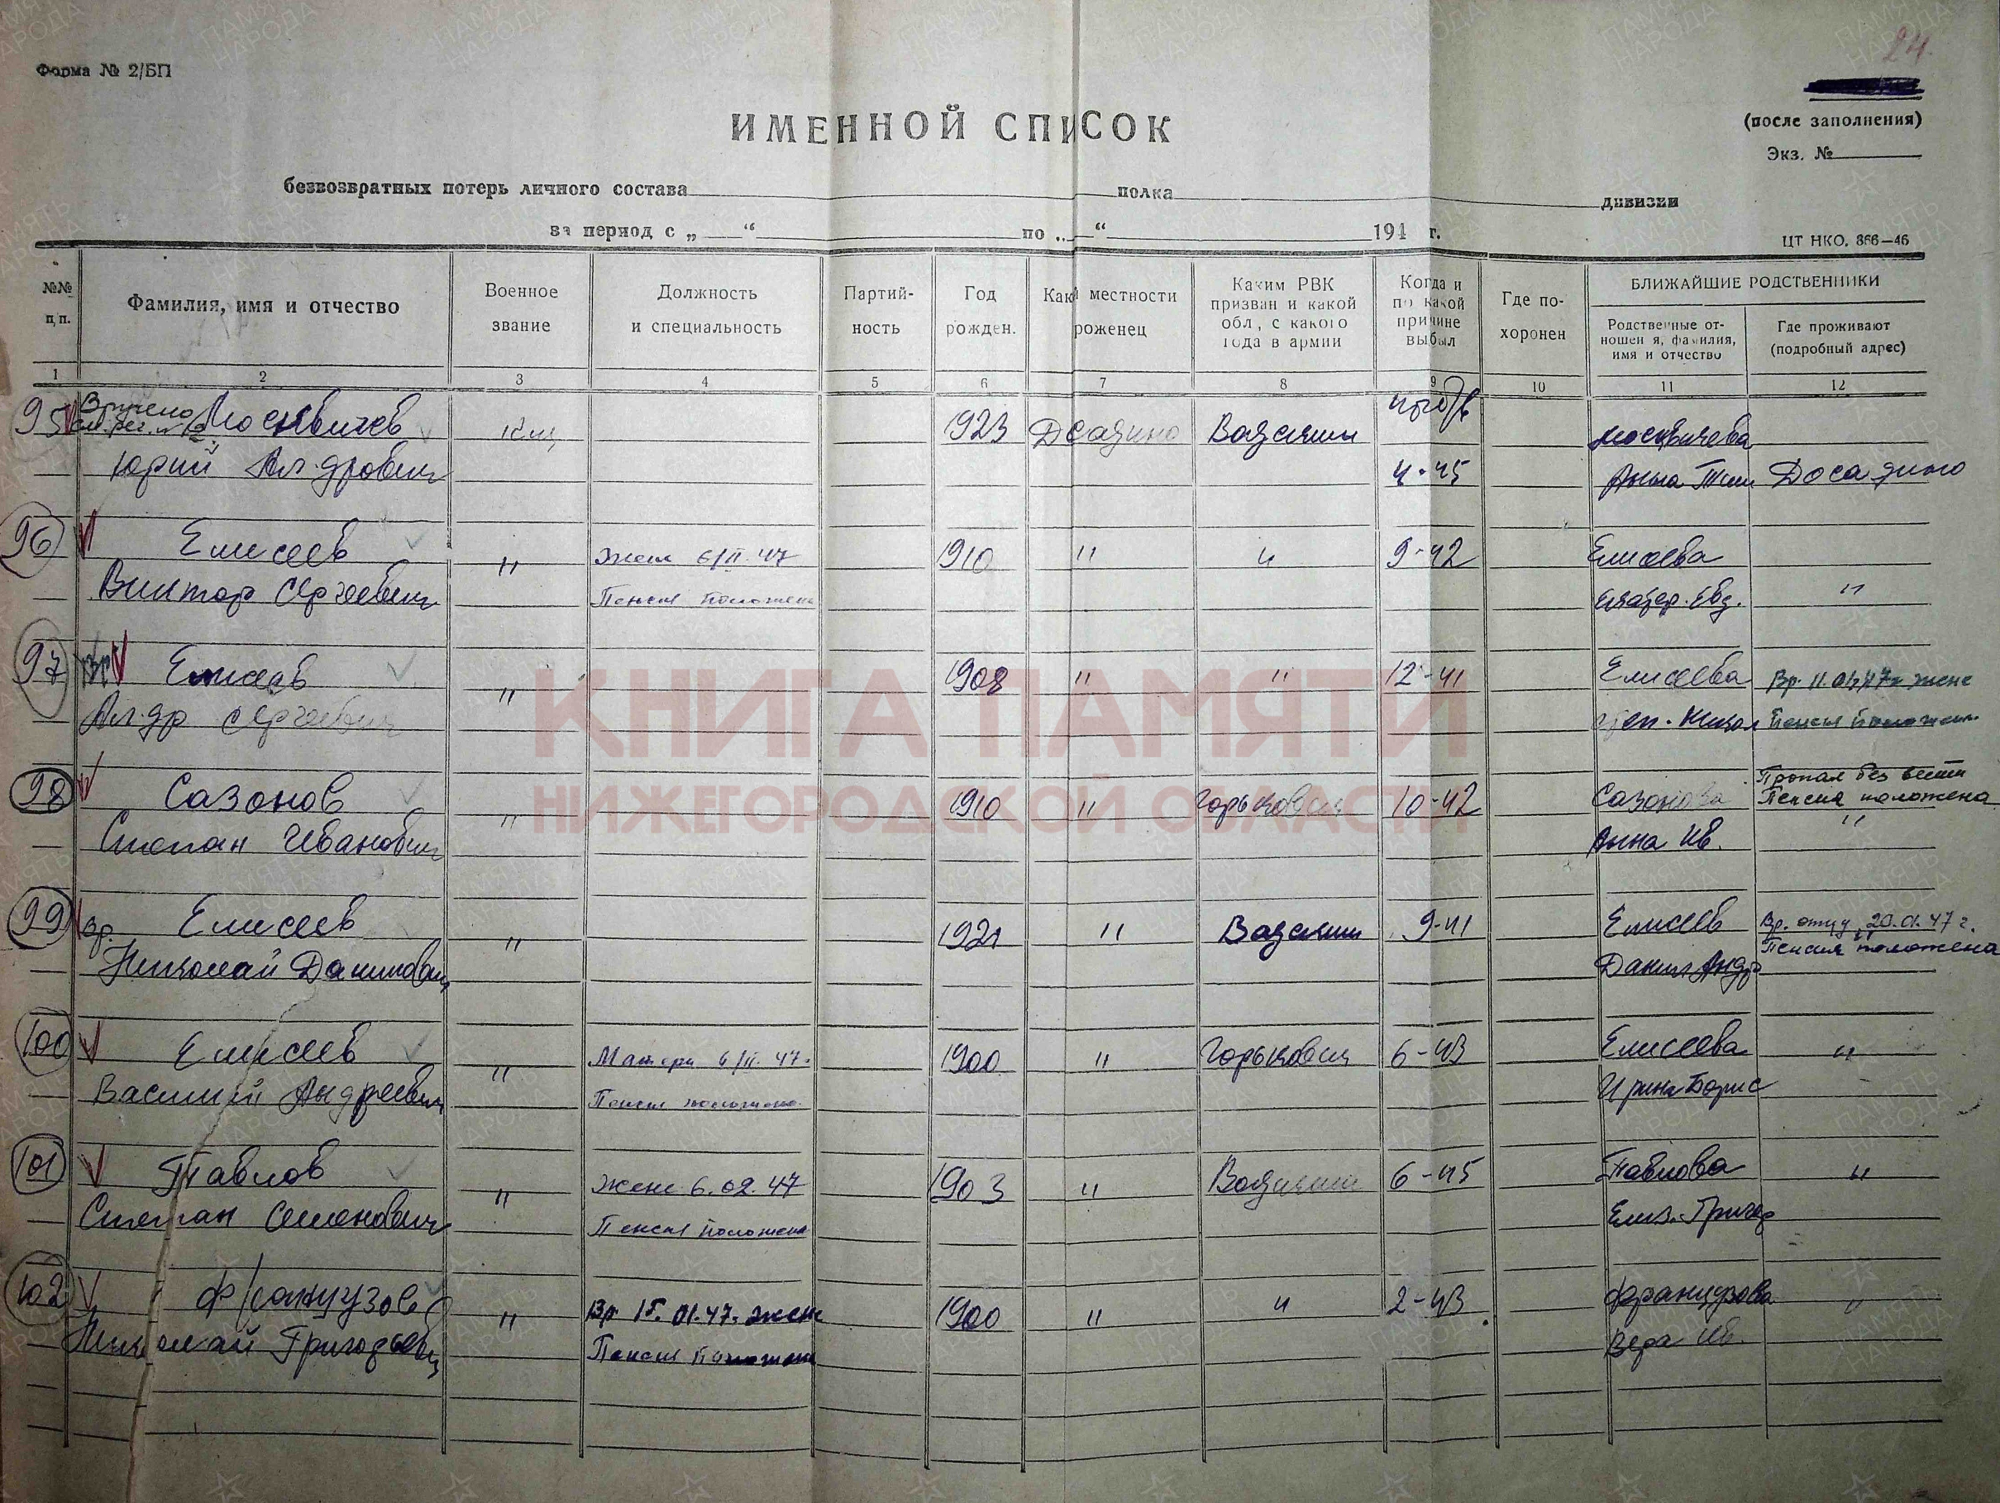 24.
Форма № 2/БП
(после заполнения)
Экз. №
ИМЕННОЙ СПИСОК
безвозвратных потерь личного состава полка дивизии
за период с „ “ по „ “ 194 г.
ЦТ НКО. 366—46
№№ п, п.
Фамилия, имя и отчество
Военное звание
Должность и специальность
Партий- ность
Год рожден.
местности роженец
Каким РВК призван и какой обл, с какого года в армии
Когда и по какой причине выбыл
Где по- хоронен
БЛИЖАЙШИЕ РОДСТВЕННИКИ
Родственные от- ношен я, фамилия, имя и отчество
Где проживают (подробный адрес)
1 2 3 4 5 6 7 8 9 10 11 12
95 Вручено Москвичев 1923 Москвичева
Юрий Ал-дрович 4-45 Анна Досадино
96 Елисеев " Жене 6/II.47 1910 " " 9-42 Елисеева
Виктор Сергеевич Пенсия положена "
97 Вр Елисеев " 1908 " " 12-41 Елисеева Вр. жене
Ал-др Сергеевич Пенсия положена
98 Сазонов " 1910 " Горьковский 10-42 Сазонова Пропал без вести
Пенсия положена
Степан Иванович Анна Ив. "
99 Вр. Елисеев " 1921 " 9-41 Елисеев Вр. отцу 20.01.47 г.
Пенсия положена
Николай Данилович Данил Андр
100 Елисеев " Матери 6/II.47 1900 " Горьковский 6-43 Елисеева "
Василий Андреевич Пенсия положена Ирина Борис
101 Павлов " Жене 6.02.47 1903 " 6-45 Павлова "
Степан Семенович Пенсия положена Елиз. Григор
102 Французов " Вр 15.01.47. жене 1900 " " 2-43 Французова "
Николай Григорьевич Пенсия положена Вера Ив.
КНИГА ПАМЯТИ
НИЖЕГОРОДСКОЙ ОБЛАСТИ
ПАМЯТЬ НАРОДА